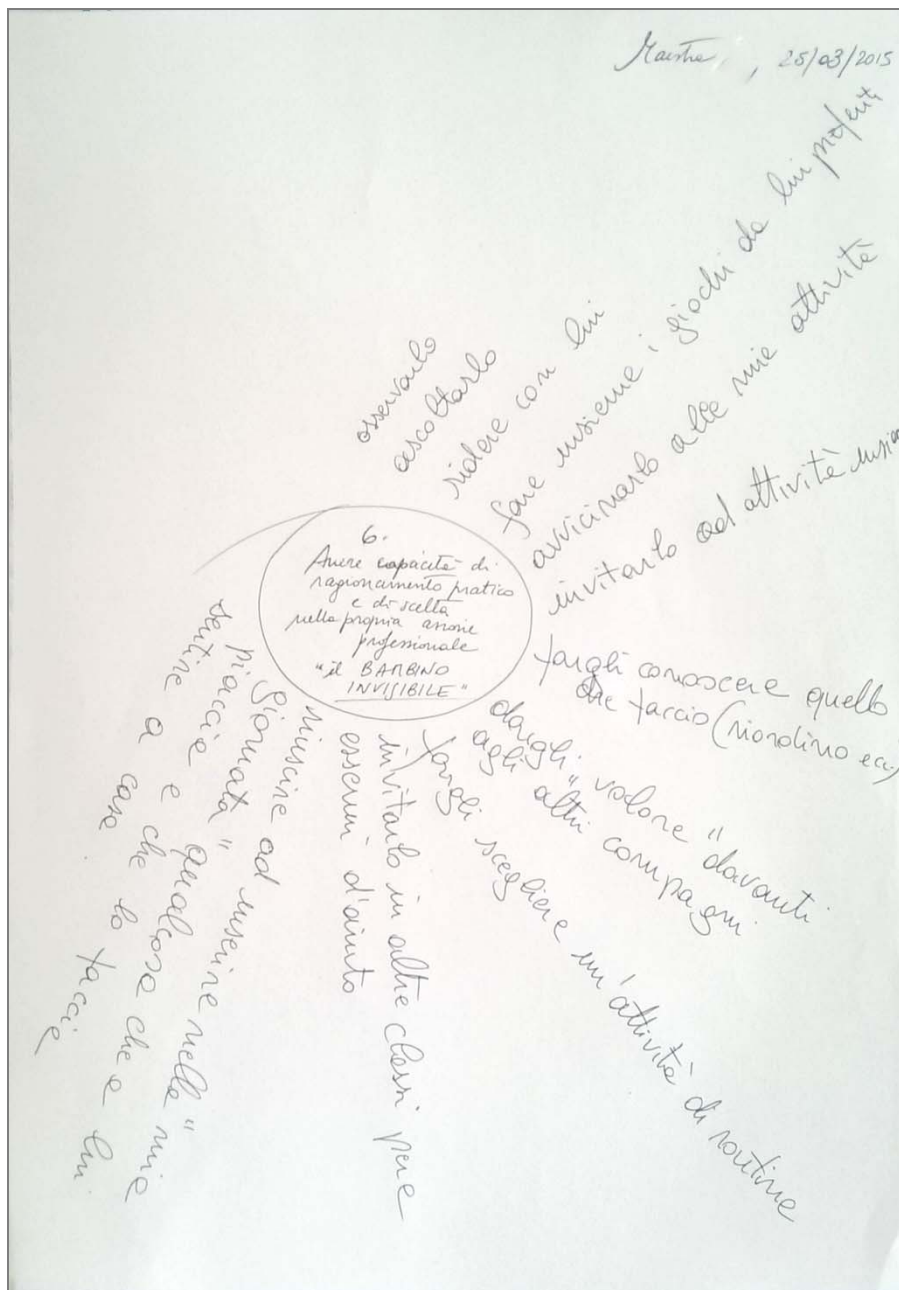 Maestra , 25/03/2015
6.
Avere capacità di
ragionamento pratico
e di scelta
nella propria azione
professionale
"il BAMBINO
INVISIBILE"
osservarlo
ascoltarlo
ridere con lui
fare insieme i giochi da lui preferiti
avvicinarlo alle mie attività
invitarlo ad attività
fargli conoscere quello
che faccio (riordino ecc)
dargli "valore" davanti
agli altri compagni
fargli scegliere un'attività di routine
invitarlo in altre classi per
essermi d'aiuto
riuscire ad inserire nella "mia
giornata" qualcosa che a lui
piaccia e che lo faccia
sentire a casa.